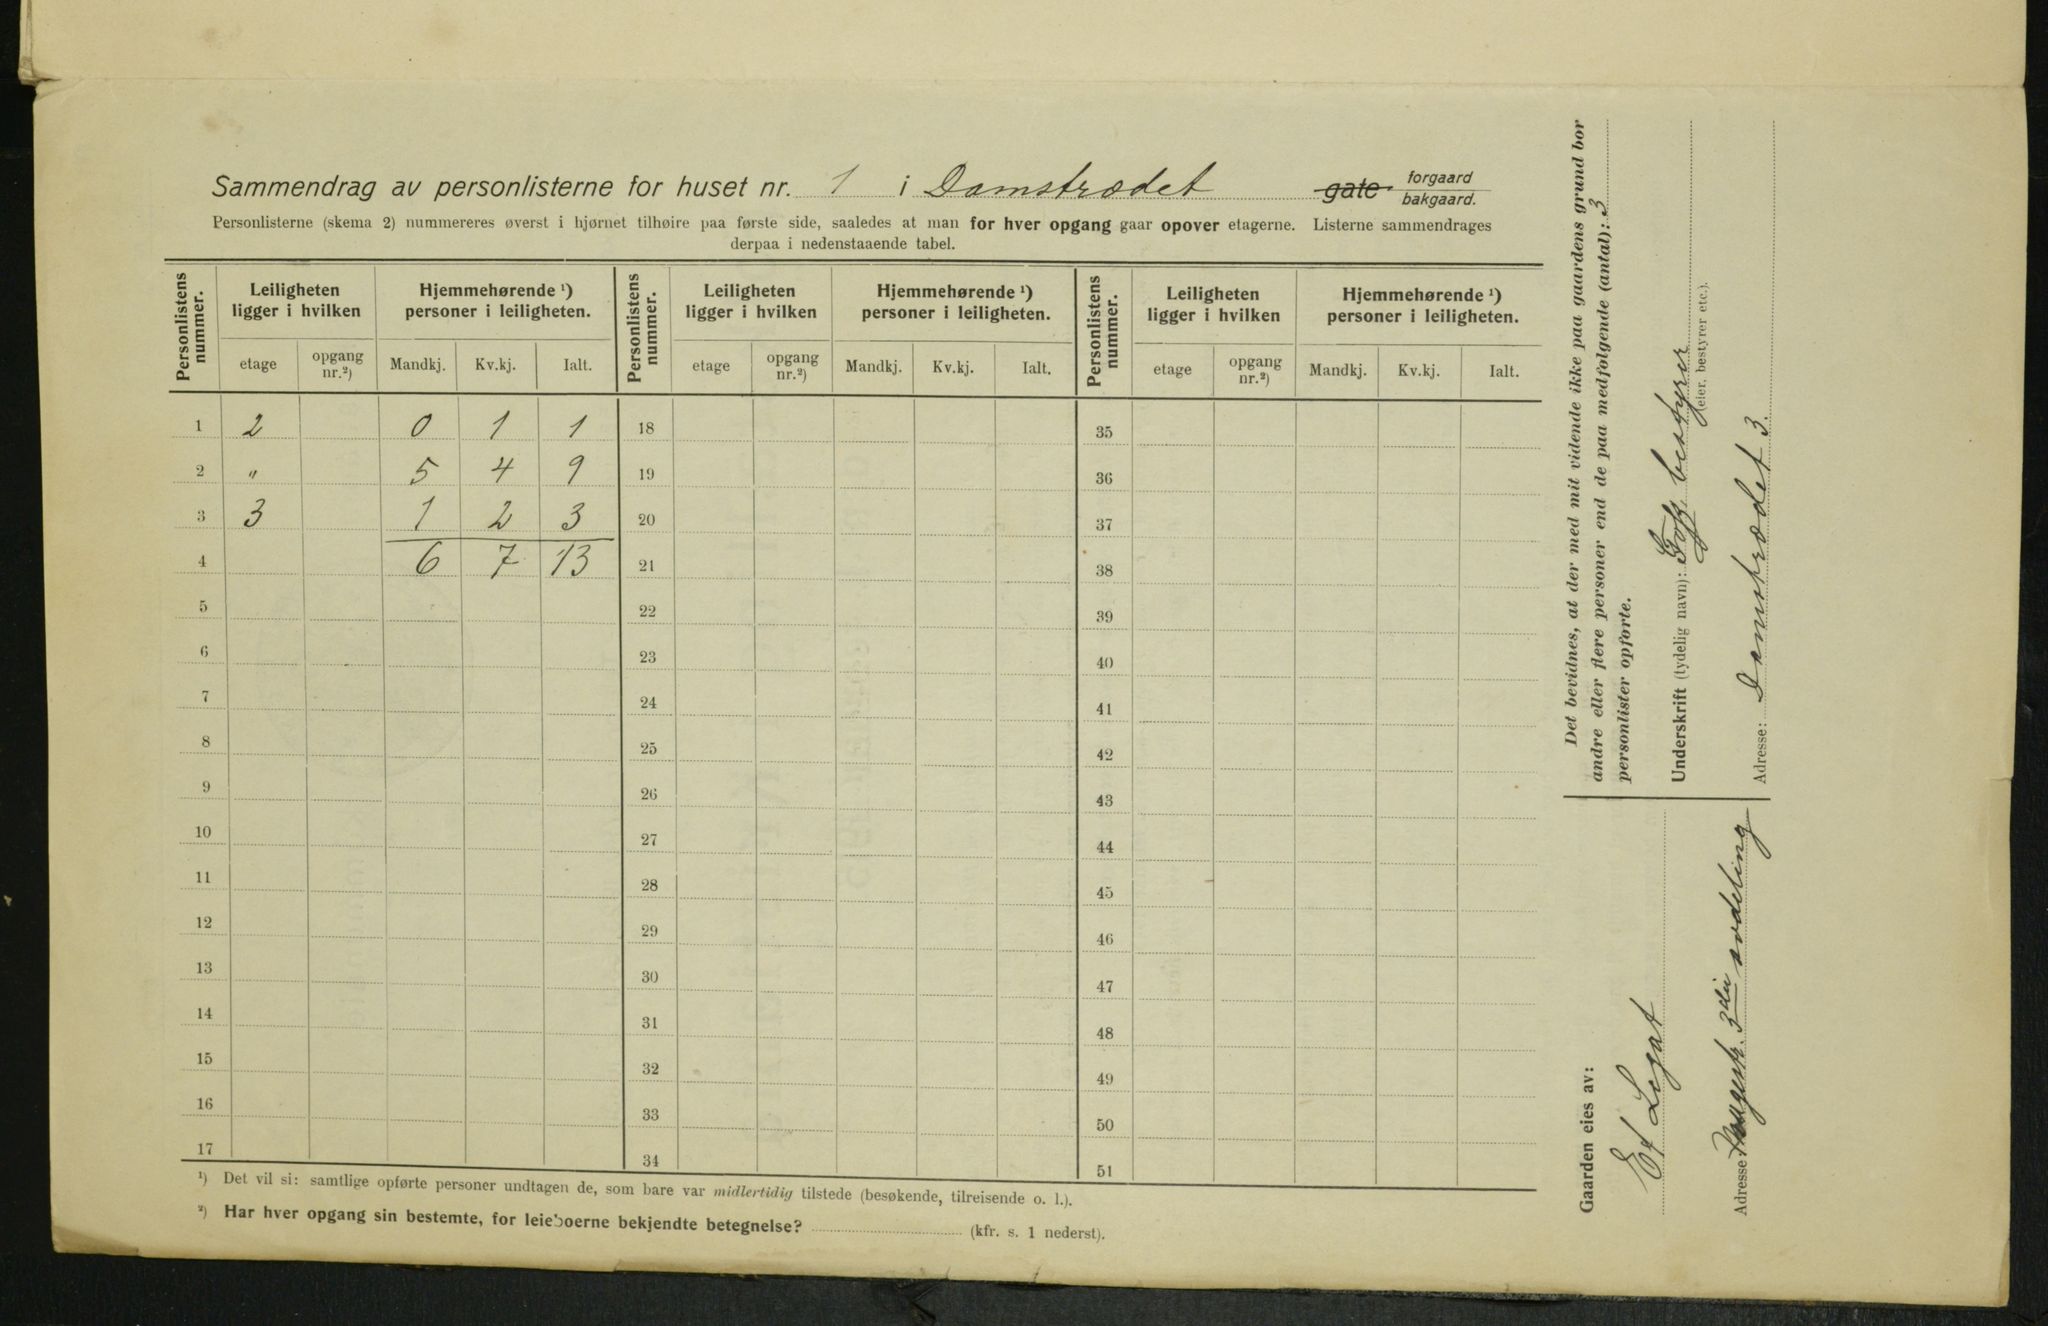 Sammendrag av personlisterne for huset nr. 1 i Damstrædet gate forgaard bakgaard.
Personlisterne (skema 2) nummereres øverst i hjørnet tilhøire paa første side, saaledes at man for hver opgang gaar opover etagerne. Listerne sammendrages
derpaa i nedenstaaende tabel.
Personlistens nummer. Leiligheten ligger i hvilken Hjemmehørende ¹) personer i leiligheten. Personlistens nummer. Leiligheten ligger i hvilken Hjemmehørende ¹) personer i leiligheten. Personlistens nummer. Leiligheten ligger i hvilken Hjemmehørende ¹) personer i leiligheten.
etage opgang nr.²) Mandkj. Kv.kj. Ialt. etage opgang nr.²) Mandkj. Kv.kj. Ialt. etage opgang nr.²) Mandkj. Kv.kj. Ialt.
1 2 0 1 1 18 35
2 " 5 4 9 19 36
3 3 1 2 3 20 37
4 6 7 13 21 38
5 22 39
6 23 40
7 24 41
8 25 42
9 26 43
10 27 44
11 28 45
12 29 46
13 30 47
14 31 48
15 32 49
16 33 50
17 34 51
¹) Det vil si: samtlige opførte personer undtagen de, som bare var midlertidig tilstede (besøkende, tilreisende o. l.).
²) Har hver opgang sin bestemte, for leieboerne bekjendte betegnelse? (kfr. s. 1 nederst).
Det bevidnes, at der med mit vidende ikke paa gaardens grund bor
andre eller flere personer end de paa medfølgende (antal): 3
personlister opførte.
Underskrift (tydelig navn): bestyrer
(eier, bestyrer etc.).
Adresse: Damstrædet 3.
Gaarden eies av:
Legat
Adresse 3die avdeling